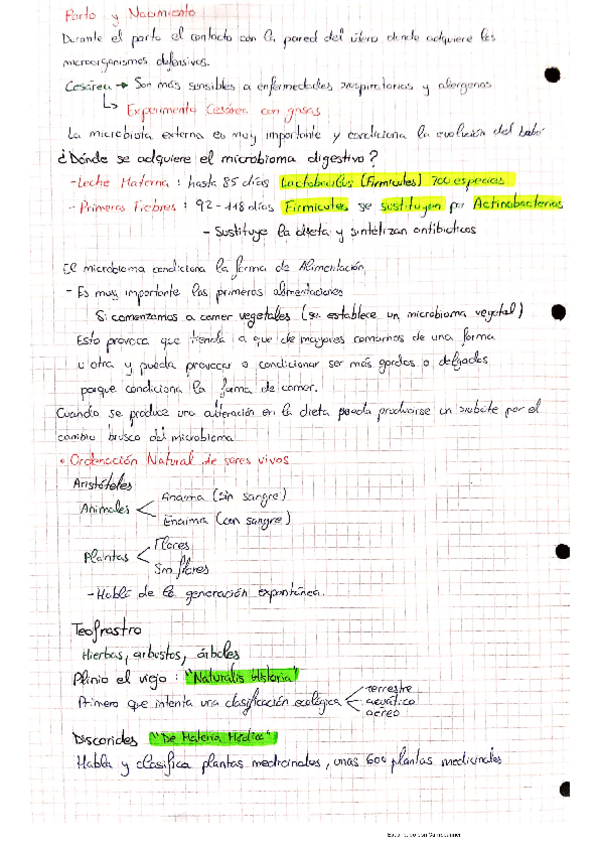 Parto y Nacimiento
Durante el parto el contacto con la pared del útero donde adquiere los
microorganismos defensivos.
Cesárea → Son más sensibles a enfermedades respiratorias y alergenos
↳ Experimento Cesárea con gasas
La microbiota externa es muy importante y condiciona la evolución del bebé
¿Dónde se adquiere el microbioma digestivo?
- Leche Materna : hasta 85 días Lactobacillus (Firmicutes) 700 especies
- Primeras Fiebres : 92 - 118 días Firmicutes se sustituyen por Actinobacterias
- Sustituye la dieta y sintetizan antibioticos
El microbioma condiciona la forma de Alimentación
- Es muy importante las primeras alimentaciones
Si comenzamos a comer vegetales (se establece un microbioma vegetal)
Esto provoca que tienda a que de mayores comamos de una forma
u otra y pueda provocar o condicionar ser más gordos o delgados
porque condiciona la forma de comer.
Cuando se produce una alteración en la dieta puede producirse un rebote por el
cambio brusco del microbioma
• Ordenación Natural de seres vivos
Aristóteles
Animales < Anaima (sin sangre)
Enaima (con sangre)
Plantas < Flores
Sin flores
- Habló de la generación espontánea.
Teofrastro
Hierbas, arbustos, árboles
Plinio el viejo : "Naturalis Historia"
Primero que intenta una clasificación ecológica < terrestre
acuático
aéreo
Discorides "De Materia Médica"
Habla y clasifica plantas medicinales, unas 600 plantas medicinales